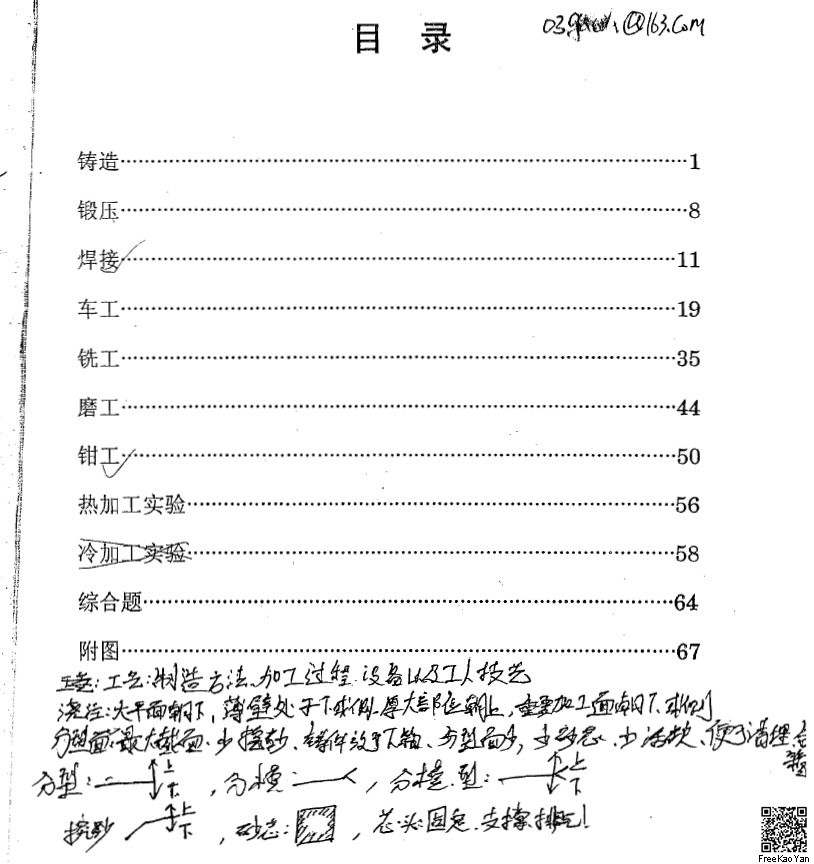 目 录
@163.com
铸造 1
锻压 8
焊接 11
车工 19
铣工 35
磨工 44
钳工 50
热加工实验 56
冷加工实验 58
综合题 64
附图 67
工艺:制造方法、加工过程、设备以及工人技艺
浇注:大平面朝下,薄壁处于下或侧,厚大部位朝上,重要加工面朝下或侧
分型面:最大截面、少挖砂、铸件放于下箱、分型面少,少砂芯、少活块、便于清理
分型: 上 下 ,分模: ,分模、型: 上 下
挖砂 上 下 ,砂芯: ,芯头固定、支撑、排气!
FreeKaoYan